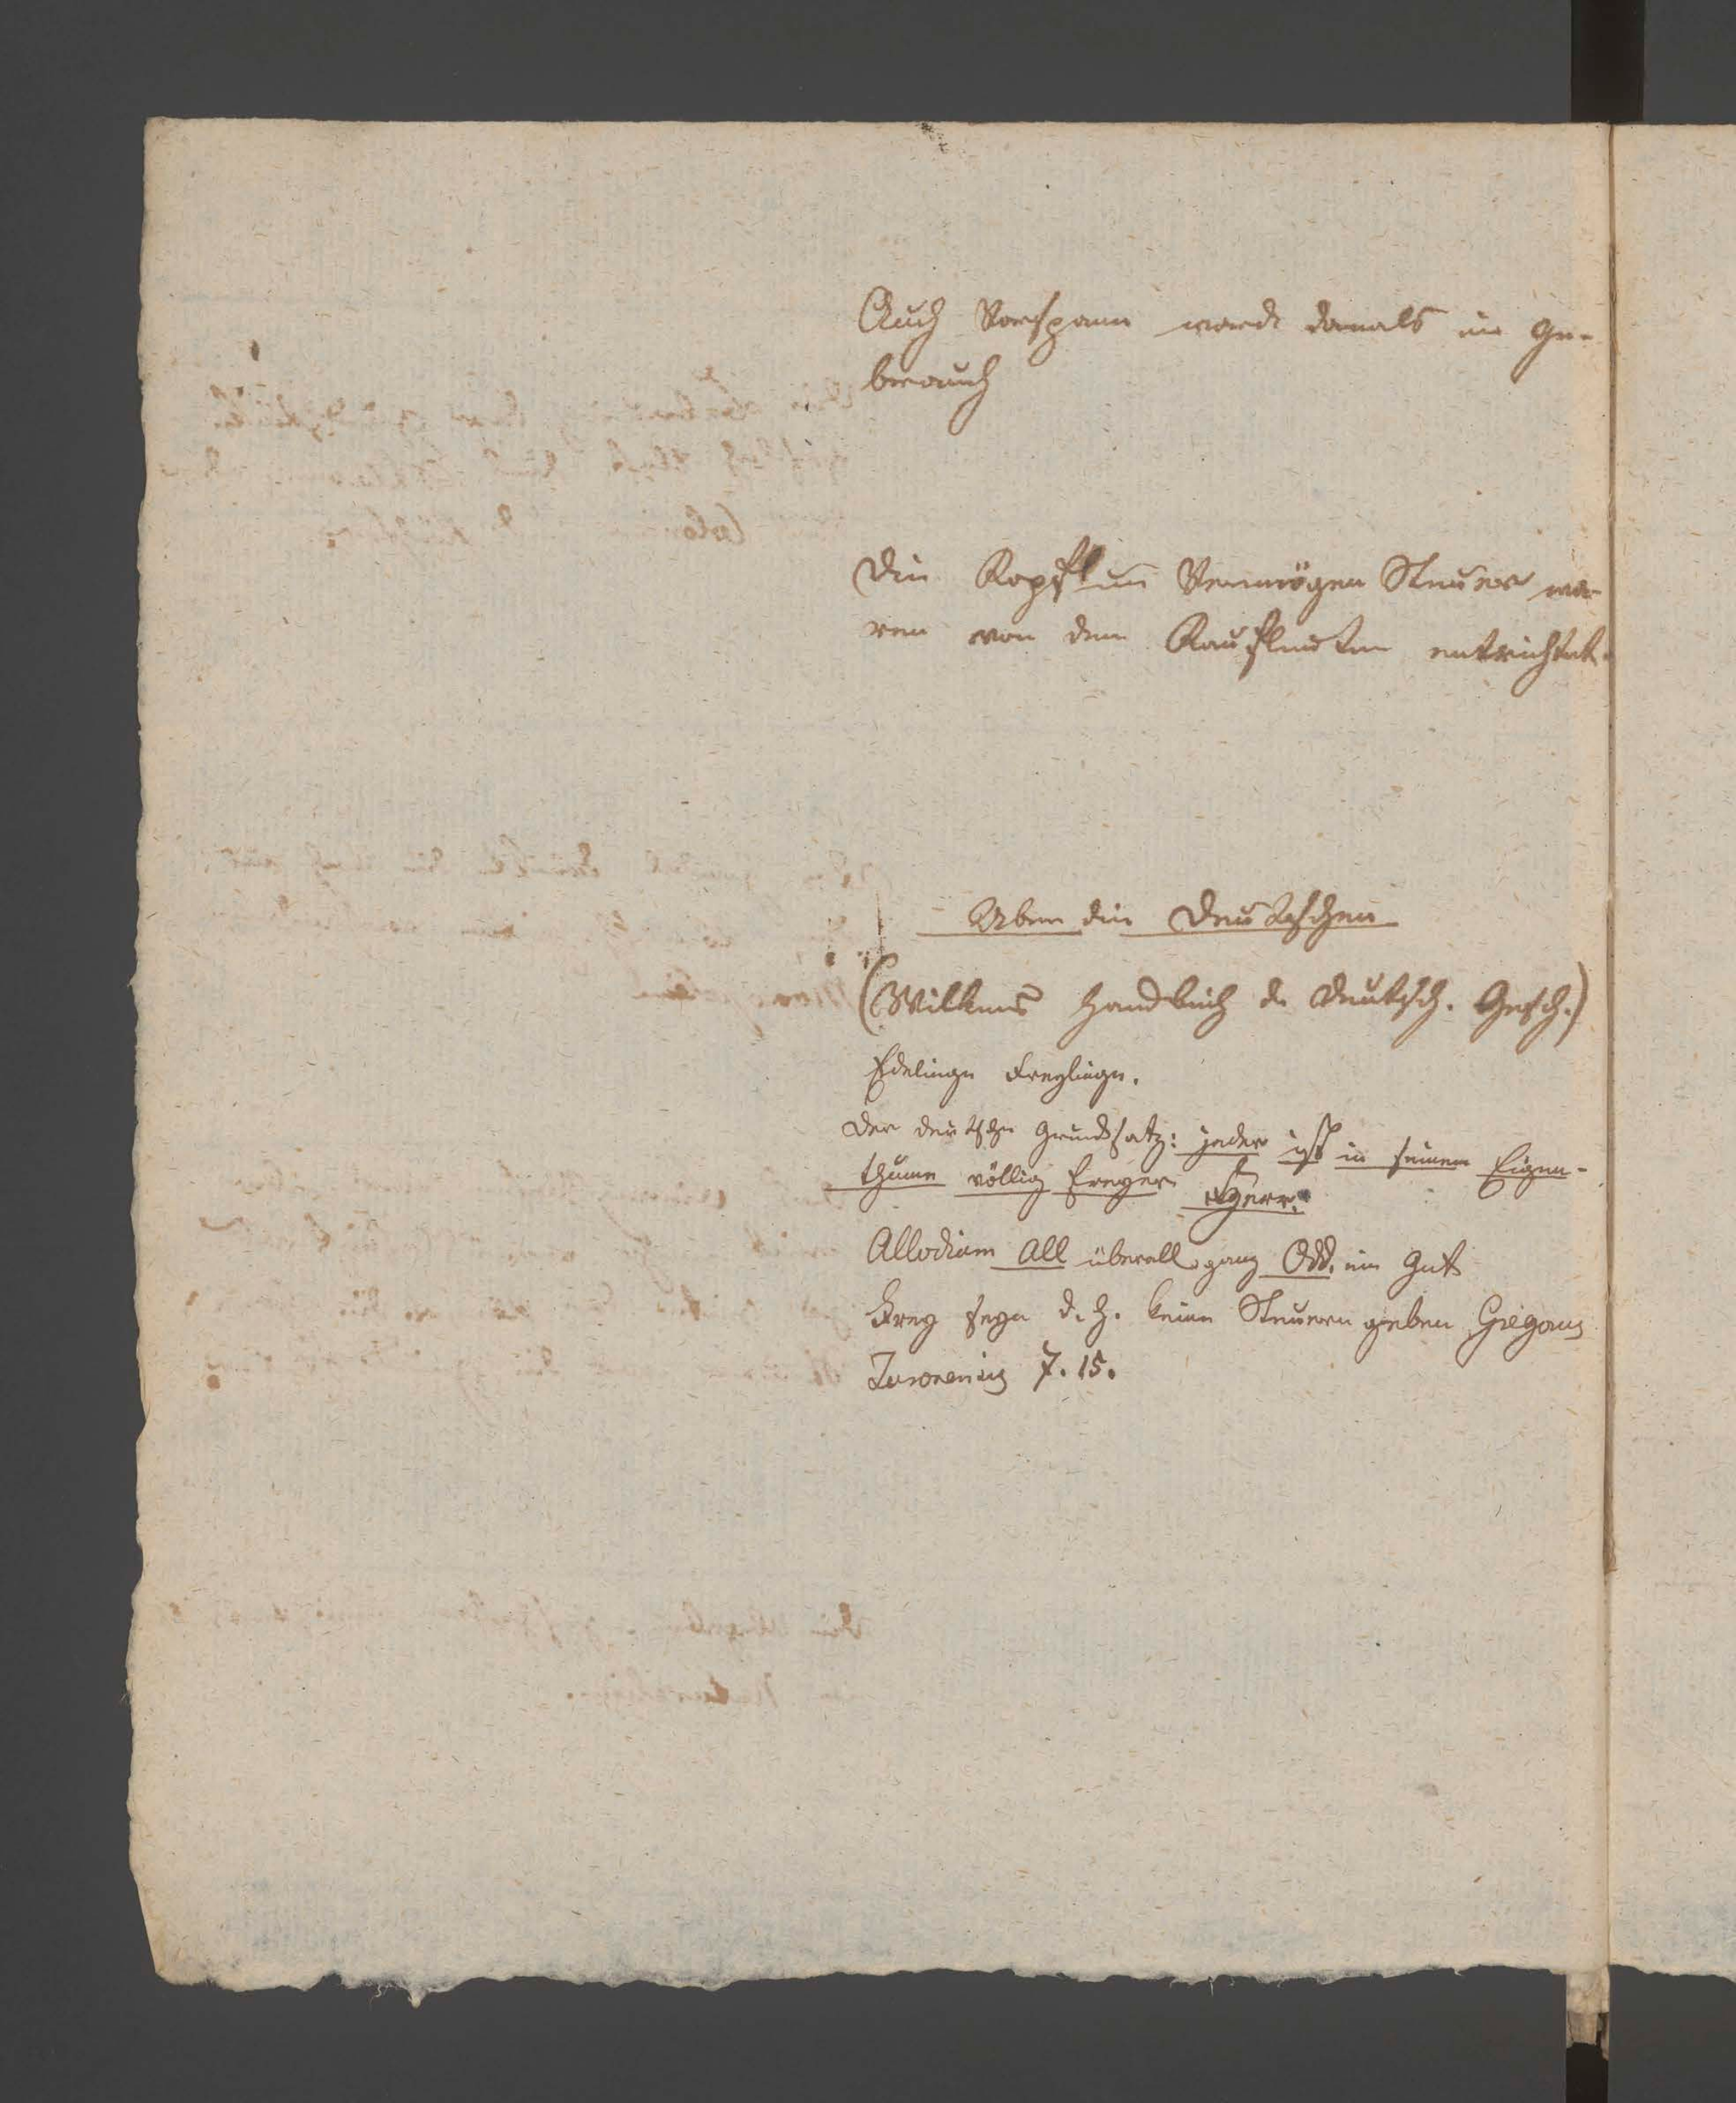 Auch Vorspann ward damals in Ge-
brauch
Die Kopf un Vermögen Steuer wa-
ren von den Kaufleuten entrichtet.
Uber die Deutschen
(Wilkens Handbuch d. Deutsch. Gesch.)
Edelinge Freylinge.
Der deutsche Grundsatz: jeder ist in seinem Eigen-
thume völlig freyer Herr.
Allodium All überall, ganz Odd. ein Gut
Frey seyn d. h. keine Steuern geben
7. 15.